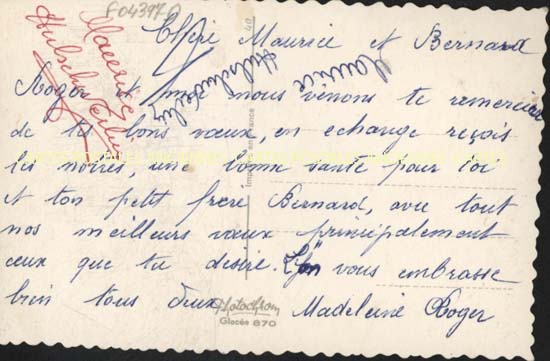 F04397
Maurice
Maurice
Chère Maurice et Bernard
Roger et moi nous vénons te remercier
de tes bons vœux, en echange reçois
les notres, une bonne santé pour toi
et ton petit frère Bernard, avec tout
nos meilleurs vœux principalement
ceux que tu desire. vous embrasse
bien tous deux Madeleine Roger
Photochrom
Glacée 870
40